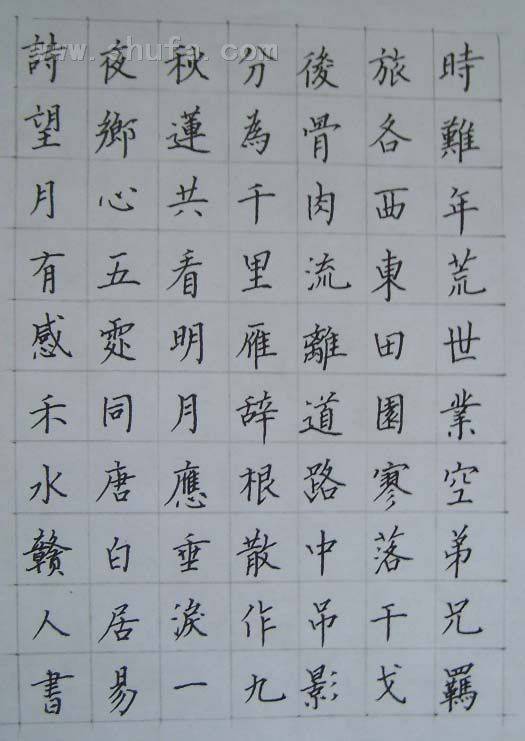 時難年荒世業空弟兄羈
旅各西東田園寥落干戈
後骨肉流離道路中吊影
分為千里雁辞根散作九
秋蓮共看明月應垂淚一
夜鄉心五處同唐白居易
詩望月有感禾水贛人書
www.shufa.com